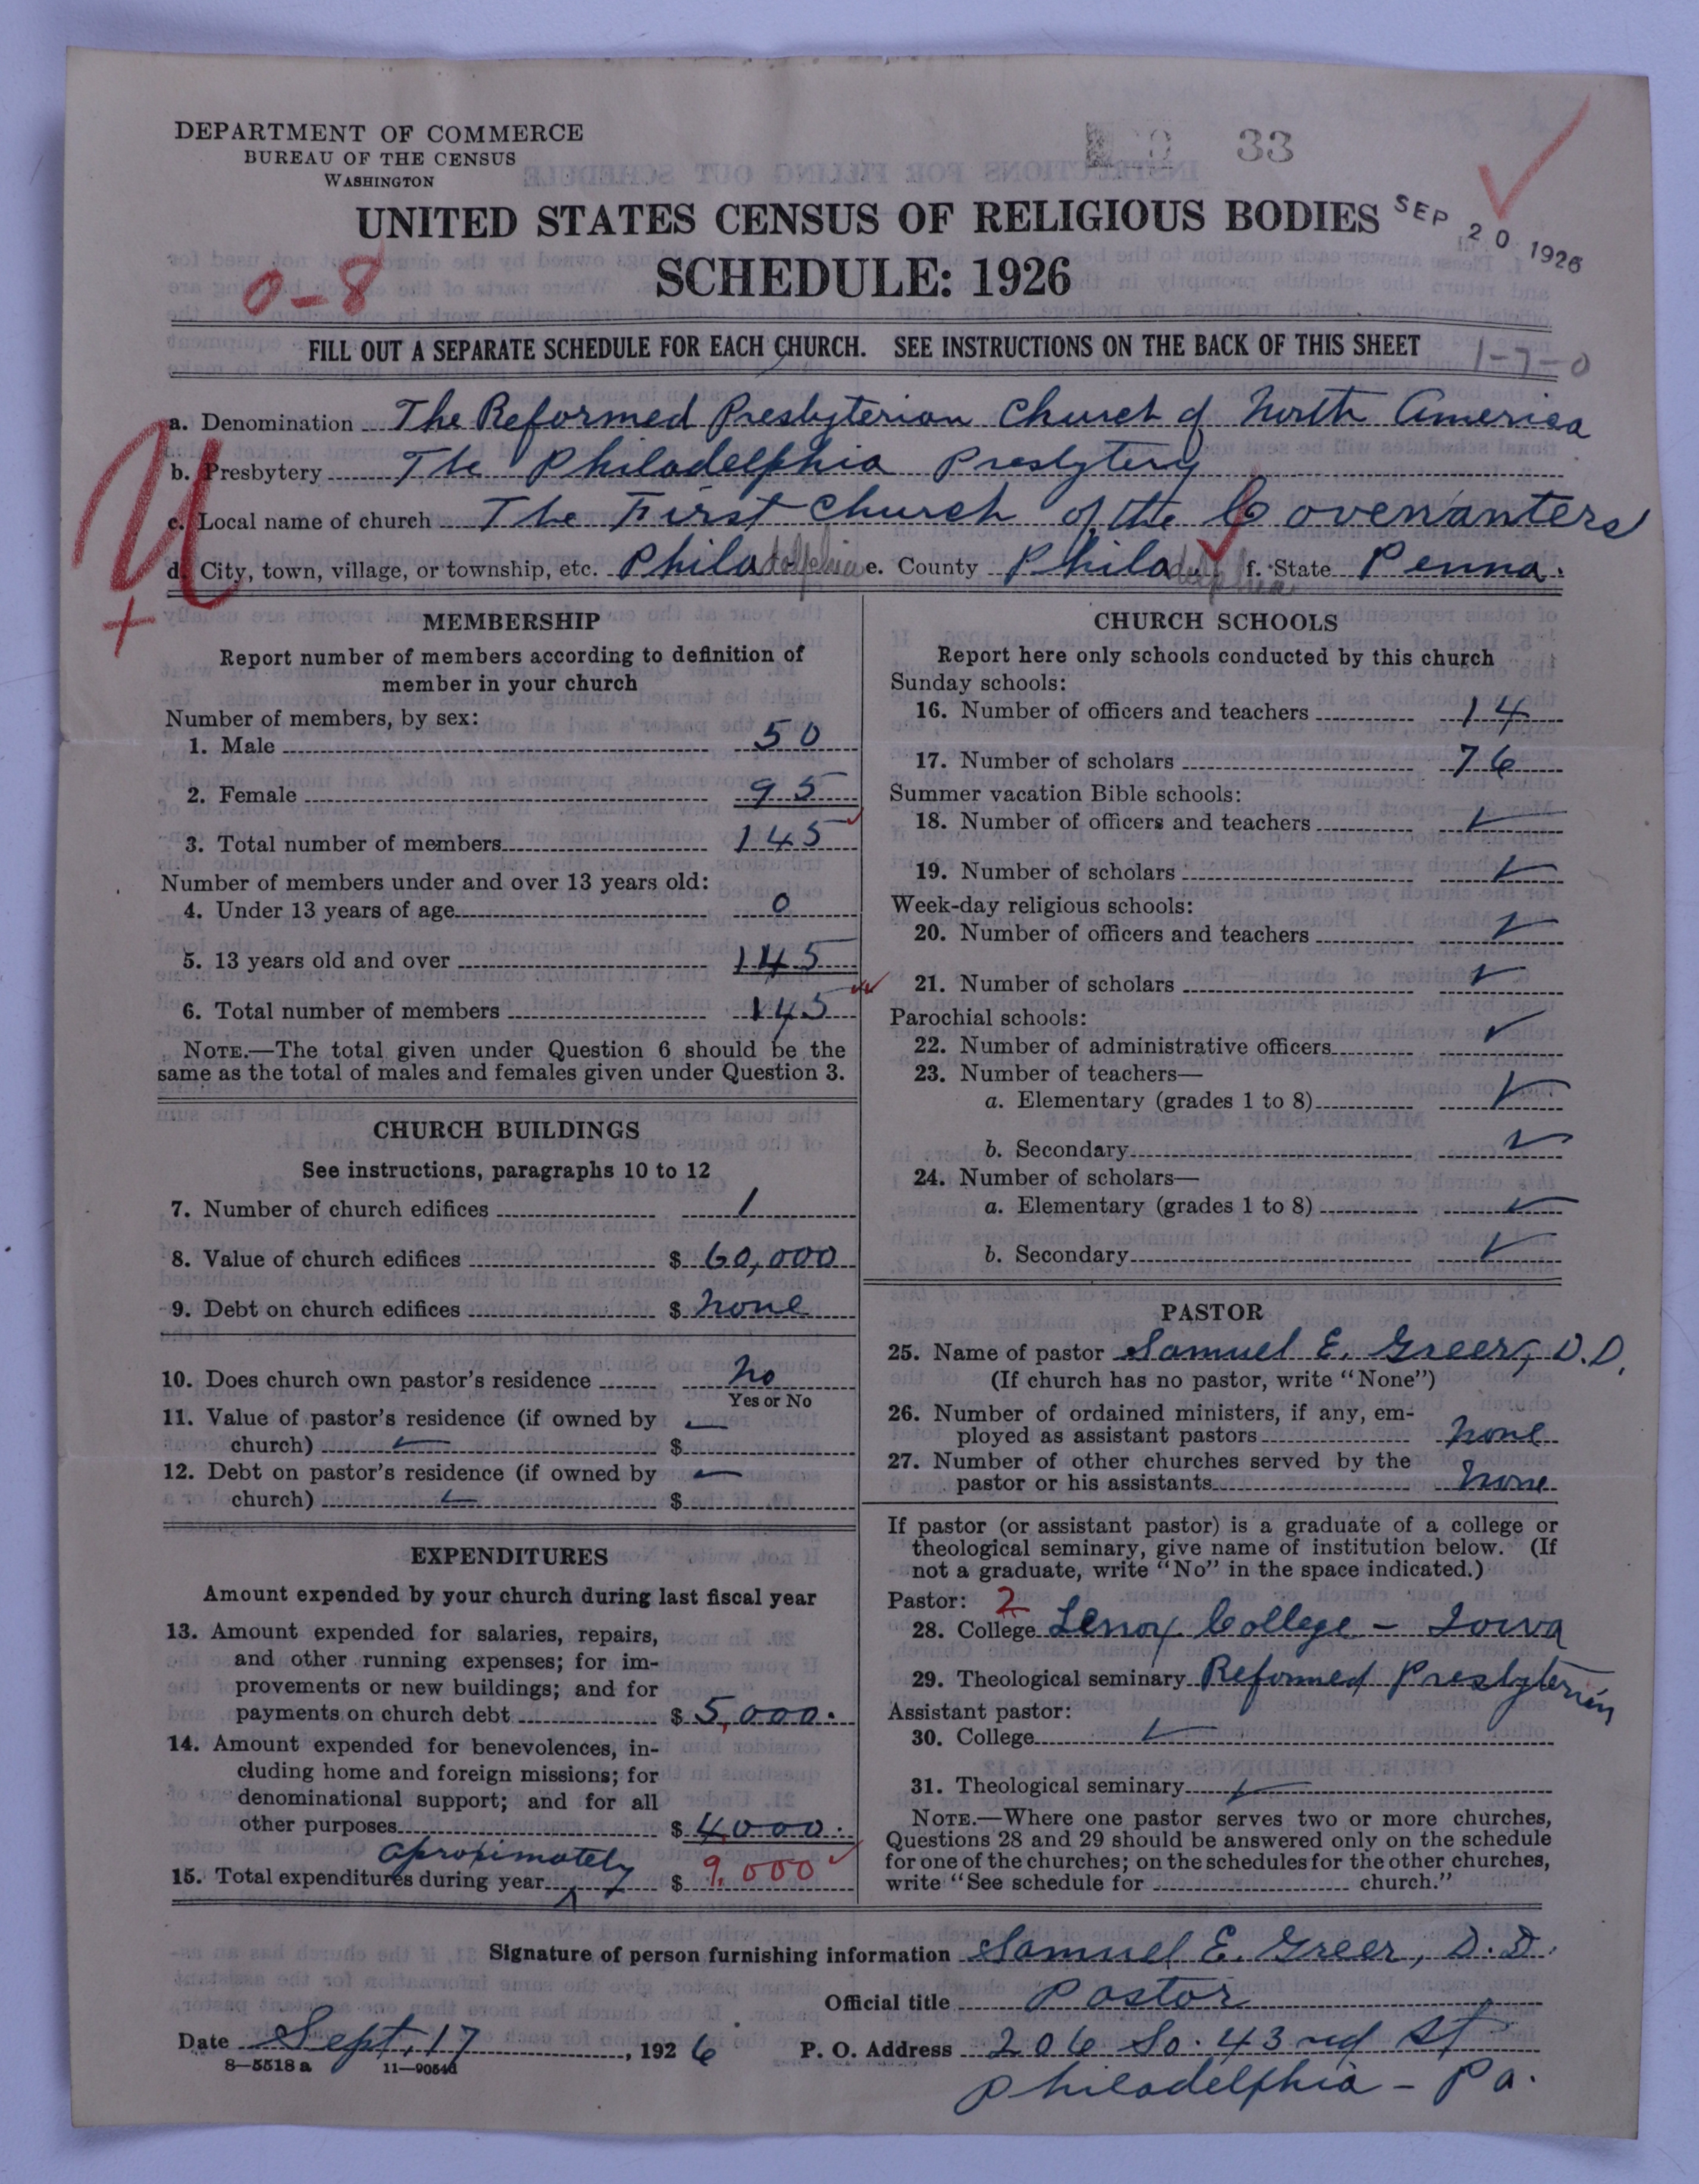 DEPARTMENT OF COMMERCE
BUREAU OF THE CENSUS
WASHINGTON
33
UNITED STATES CENSUS OF RELIGIOUS BODIES
SEP 20 1926
SCHEDULE: 1926
0-8
FILL OUT A SEPARATE SCHEDULE FOR EACH CHURCH. SEE INSTRUCTIONS ON THE BACK OF THIS SHEET
1-7-0
a. Denomination The Reformed Presbyterian Church of North America
b. Presbytery The Philadelphia Presbytery
c. Local name of church The First Church of the Covenanters
d. City, town, village, or township, etc. Philadelphia e. County Philadelphia f. State Penna.
U
+
MEMBERSHIP
Report number of members according to definition of
member in your church
Number of members, by sex:
1. Male 50
2. Female 95
3. Total number of members 145
Number of members under and over 13 years old:
4. Under 13 years of age 0
5. 13 years old and over 145
6. Total number of members 145
NOTE.—The total given under Question 6 should be the
same as the total of males and females given under Question 3.
CHURCH BUILDINGS
See instructions, paragraphs 10 to 12
7. Number of church edifices 1
8. Value of church edifices $ 60,000
9. Debt on church edifices $ none
10. Does church own pastor's residence No
Yes or No
11. Value of pastor's residence (if owned by
church) $
12. Debt on pastor's residence (if owned by
church) $
EXPENDITURES
Amount expended by your church during last fiscal year
13. Amount expended for salaries, repairs,
and other running expenses; for im-
provements or new buildings; and for
payments on church debt $ 5,000.
14. Amount expended for benevolences, in-
cluding home and foreign missions; for
denominational support; and for all
other purposes $ 4000.
aproximately
15. Total expenditures during year $ 9,000
CHURCH SCHOOLS
Report here only schools conducted by this church
Sunday schools:
16. Number of officers and teachers 14
17. Number of scholars 76
Summer vacation Bible schools:
18. Number of officers and teachers
19. Number of scholars
Week-day religious schools:
20. Number of officers and teachers
21. Number of scholars
Parochial schools:
22. Number of administrative officers
23. Number of teachers—
a. Elementary (grades 1 to 8)
b. Secondary
24. Number of scholars—
a. Elementary (grades 1 to 8)
b. Secondary
PASTOR
25. Name of pastor Samuel E. Greer, D.D.
(If church has no pastor, write "None")
26. Number of ordained ministers, if any, em-
ployed as assistant pastors none
27. Number of other churches served by the
pastor or his assistants none
If pastor (or assistant pastor) is a graduate of a college or
theological seminary, give name of institution below. (If
not a graduate, write "No" in the space indicated.)
Pastor: 2
28. College Lenox College - Iowa
29. Theological seminary Reformed Presbyterian
Assistant pastor:
30. College
31. Theological seminary
NOTE.—Where one pastor serves two or more churches,
Questions 28 and 29 should be answered only on the schedule
for one of the churches; on the schedules for the other churches,
write "See schedule for church."
Signature of person furnishing information Samuel E. Greer, D.D.
Official title Pastor
Date Sept. 17, 1926 P. O. Address 206 So. 43rd St
8—5518 a 11—9054d
Philadelphia - Pa.